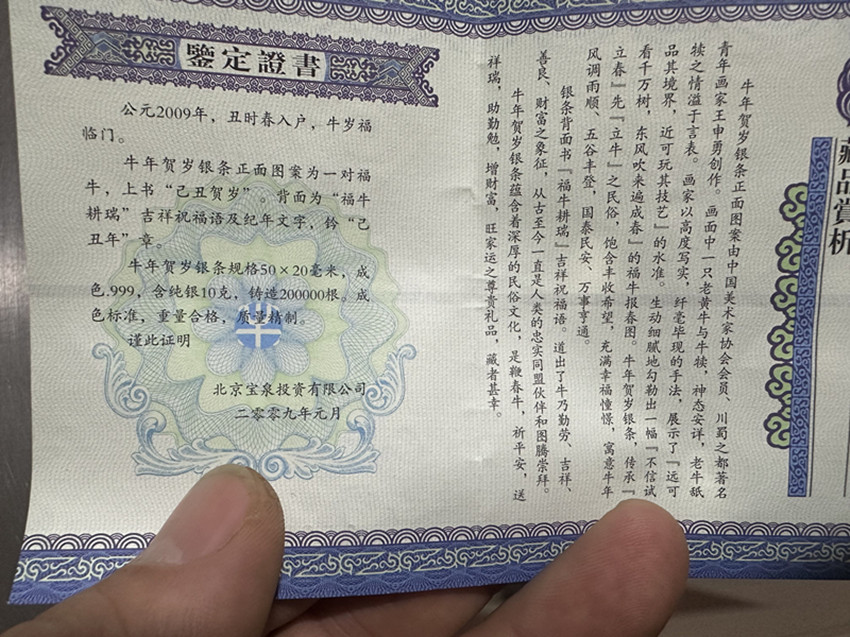 鑒定證書
公元2009年，丑时春入户，牛岁福
临门。
牛年贺岁银条正面图案为一对福
牛，上书“己丑贺岁”。背面为“福牛
耕瑞”吉祥祝福语及纪年文字，钤“己
丑年”章。
牛年贺岁银条规格50×20毫米，成
色.999，含纯银10克，铸造200000根。成
色标准，重量合格，质量精制。
谨此证明
北京宝泉投资有限公司
二零零九年元月
藏品赏析
牛年贺岁银条正面图案由中国美术家协会会员、川蜀之都著名
青年画家王申勇创作。画面中一只老黄牛与牛犊，神态安详，老牛舐
犊之情溢于言表。画家以高度写实，纤毫毕现的手法，展示了『远可
品其境界，近可玩其技艺』的水准。生动细腻地勾勒出一幅『不信试
看千万树，东风吹来遍成春』的福牛报春图。牛年贺岁银条，传承『
立春』先『立牛』之民俗，饱含丰收希望，充满幸福憧憬，寓意牛年
风调雨顺、五谷丰登，国泰民安、万事亨通。
银条背面书『福牛耕瑞』吉祥祝福语。道出了牛乃勤劳、吉祥、
善良、财富之象征，从古至今一直是人类的忠实同盟伙伴和图腾崇拜。
牛年贺岁银条蕴含着深厚的民俗文化，是鞭春牛，祈平安，送
祥瑞，助勤勉，增财富，旺家运之尊贵礼品，藏者甚幸。